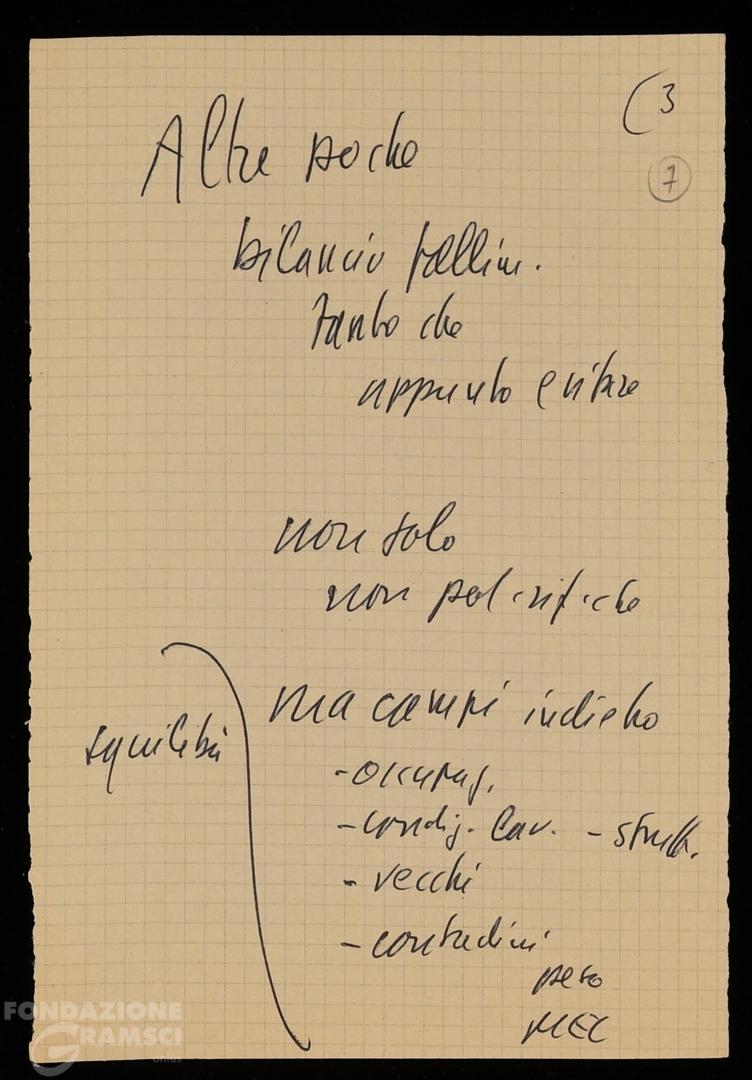 (3
7
Altre poche
bilancio fallim.
tanto che
appunto evitare
non solo
non pacifiche
ma campi indietro
squilibri
- occupaz.
- condiz. lav. - strutt.
- vecchi
- contadini
peso
MEC
FONDAZIONE
GRAMSCI
onlus